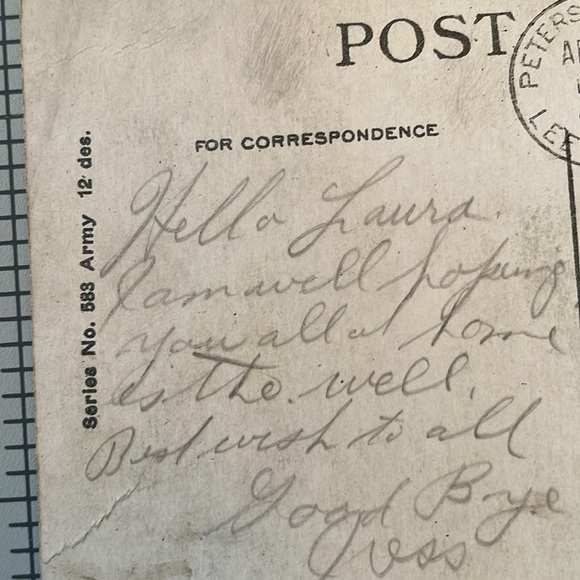 POST
PETERS
LEE
FOR CORRESPONDENCE
Series No. 583 Army 12 des.
Hello Laura
I am well hopeing
you all at home
is the well,
Best wish to all
Good Bye